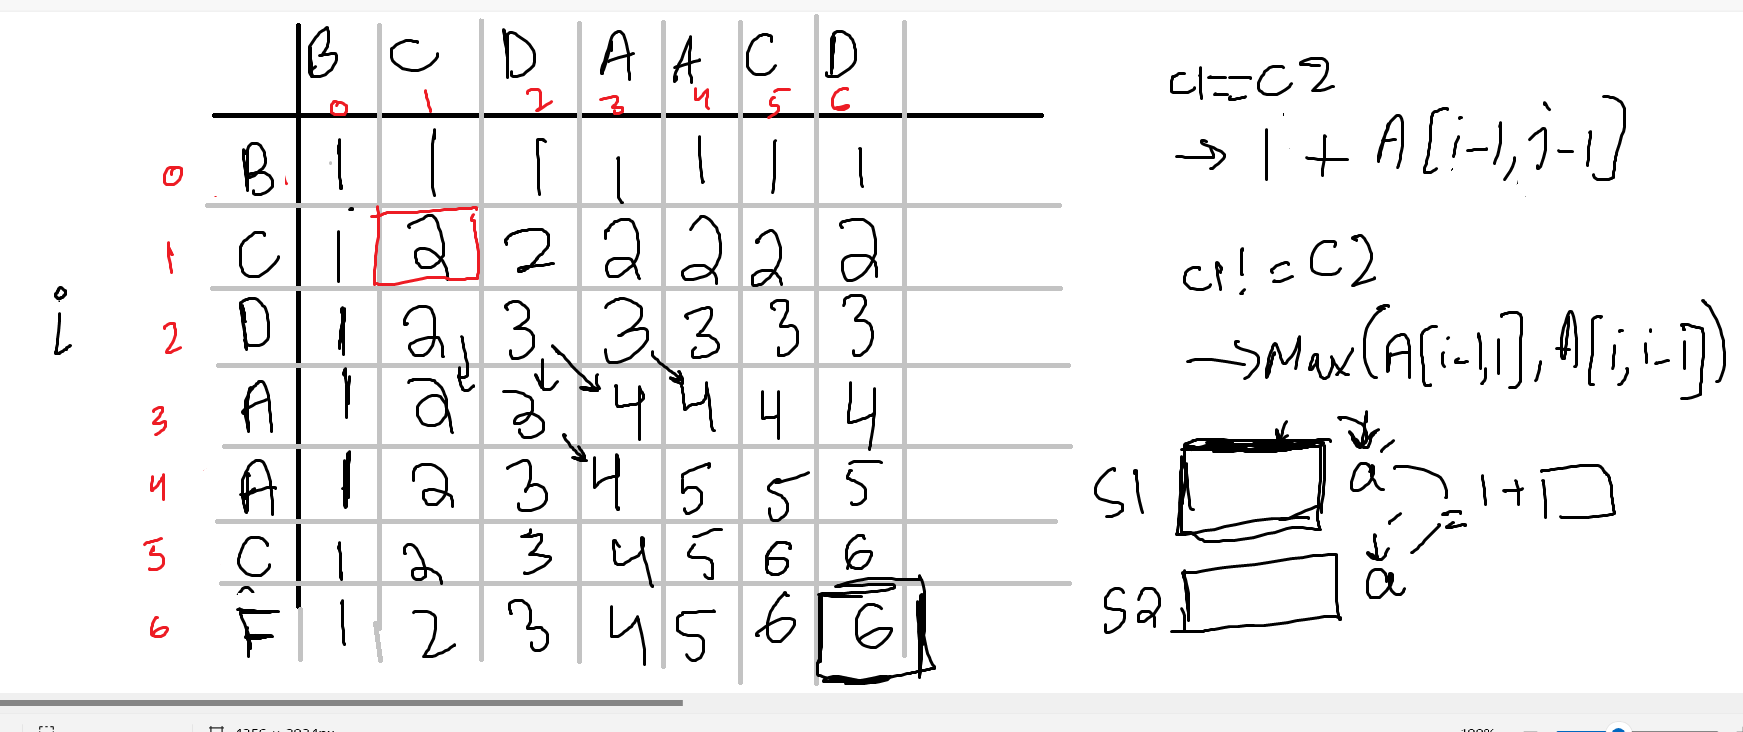 B C D A A C D
0 1 2 3 4 5 6
0 B 1 1 1 1 1 1 1
1 C 1 2 2 2 2 2 2
i
2 D 1 2 3 3 3 3 3
3 A 1 2 3 4 4 4 4
4 A 1 2 3 4 5 5 5
5 C 1 2 3 4 5 6 6
6 F 1 2 3 4 5 6 6
c1==C2
→ 1 + A[i-1, j-1]
c1!=C2
→Max(A[i-1,i], A[i, i-1])
S1 a = 1+
S2 a